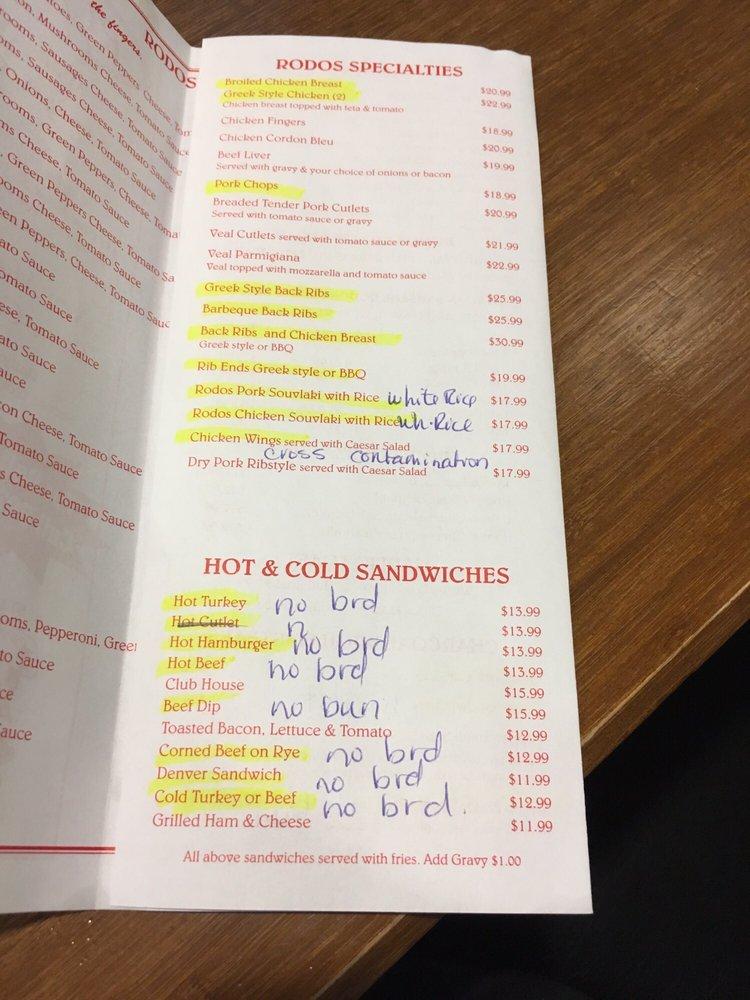 the fingers
RODOS
toes, Green Peppers, Cheese, Tom
on, Mushrooms Cheese, Tomato
rooms, Sausages Cheese, Tomato Sauce
oms, Sausages Cheese, Tomato Sauce
Onions, Cheese, Tomato Sauce
rooms, Green Peppers, Cheese, Toma
ms Cheese, Tomato Sauce
, Green Peppers Cheese, Tomato Sa
ooms Cheese, Tomato Sauce
en Peppers, Cheese, Tomato Sauc
ato Sauce
omato Sauce
ese, Tomato Sauce
ato Sauce
auce
con Cheese, Tomato Sauce
Tomato Sauce
s Cheese, Tomato Sauce
Sauce
oms, Pepperoni, Green
to Sauce
ce
auce
RODOS SPECIALTIES
Broiled Chicken Breast $20.99
Greek Style Chicken (2) $22.99
Chicken breast topped with feta & tomato
Chicken Fingers $18.99
Chicken Cordon Bleu $20.99
Beef Liver $19.99
Served with gravy & your choice of onions or bacon
Pork Chops $18.99
Breaded Tender Pork Cutlets $20.99
Served with tomato sauce or gravy
Veal Cutlets served with tomato sauce or gravy $21.99
Veal Parmigiana $22.99
Veal topped with mozzarella and tomato sauce
Greek Style Back Ribs $25.99
Barbeque Back Ribs $25.99
Back Ribs and Chicken Breast $30.99
Greek style or BBQ
Rib Ends Greek style or BBQ $19.99
Rodos Pork Souvlaki with Rice white Rice $17.99
Rodos Chicken Souvlaki with Rice wh. Rice $17.99
Chicken Wings served with Caesar Salad $17.99
cross contamination
Dry Pork Ribstyle served with Caesar Salad $17.99
HOT & COLD SANDWICHES
Hot Turkey no brd $13.99
Hot Cutlet n $13.99
Hot Hamburger no brd $13.99
Hot Beef no brd $13.99
Club House $15.99
Beef Dip no bun $15.99
Toasted Bacon, Lettuce & Tomato $12.99
Corned Beef on Rye no brd $12.99
Denver Sandwich no brd $11.99
Cold Turkey or Beef no brd. $12.99
Grilled Ham & Cheese $11.99
All above sandwiches served with fries. Add Gravy $1.00